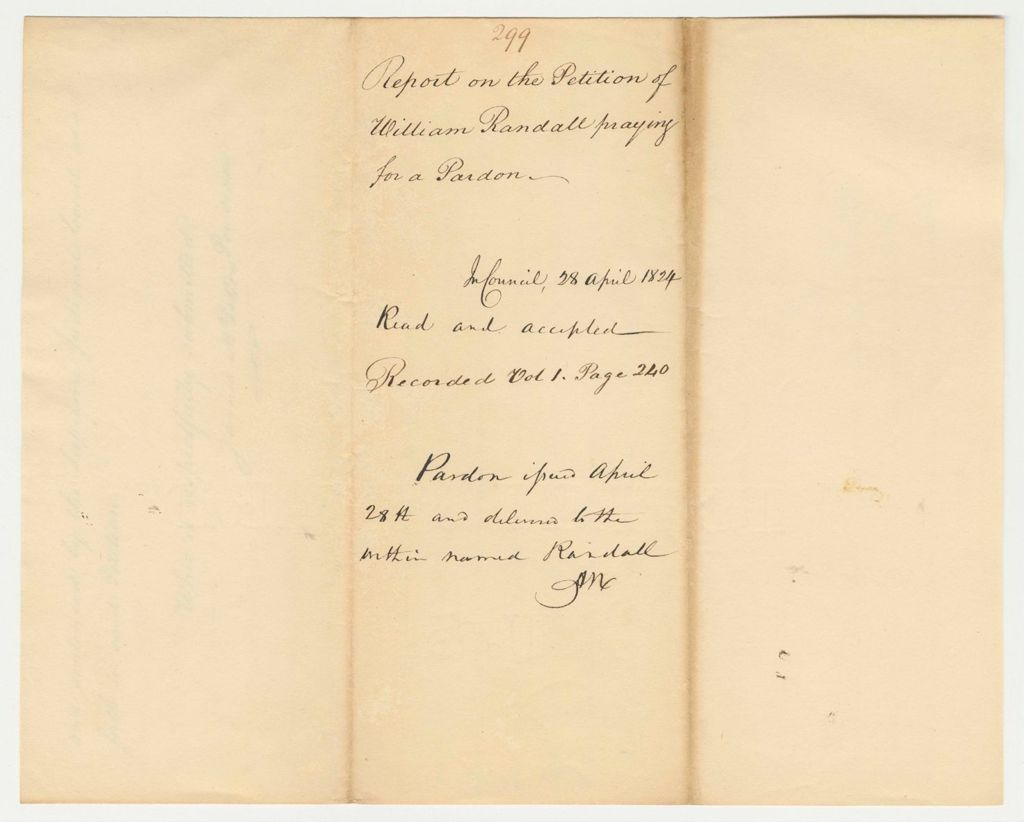 299
Report on the Petition of
William Randall praying
for a Pardon
In Council, 28 April 1824
Read and accepted
Recorded Vol 1. Page 240
Pardon issued April
28th and delivered to the
within named Randall